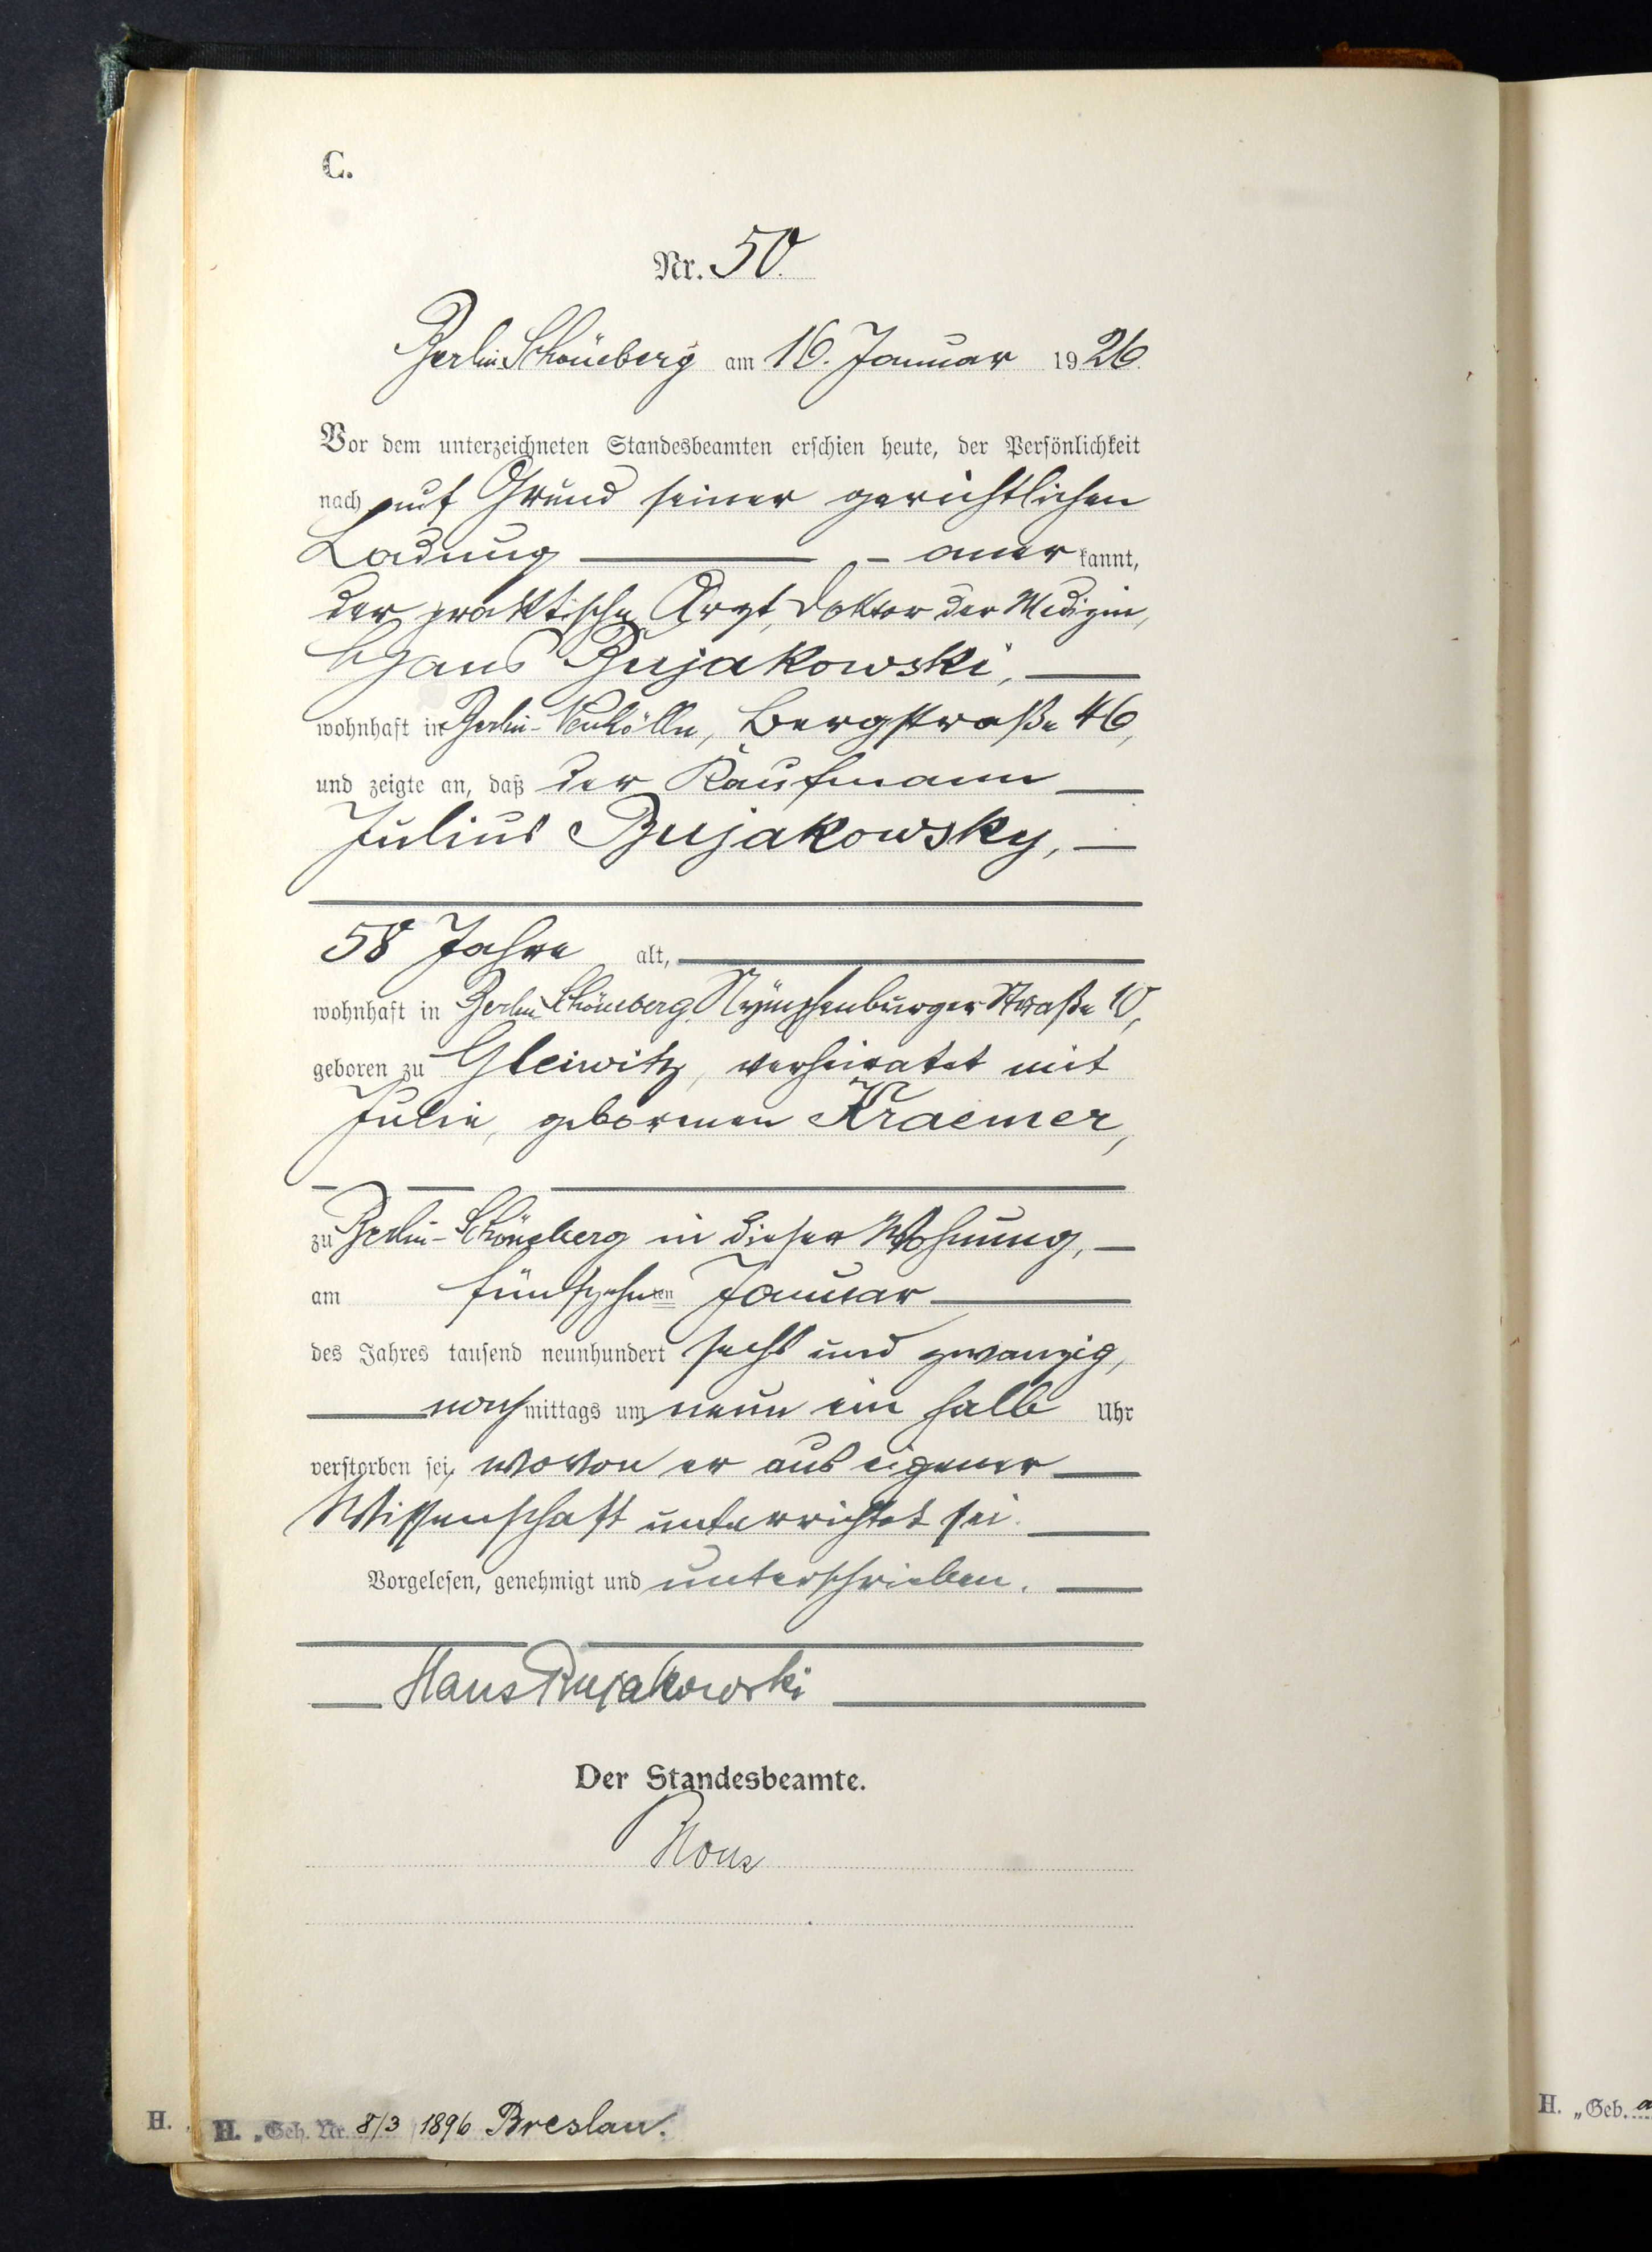 C.
Nr. 50.
Berlin-Schöneberg am 16. Januar 1926.
Vor dem unterzeichneten Standesbeamten erschien heute, der Persönlichkeit
nach auf Grund seiner gerichtlichen
Ladung — anerkannt,
der praktische Arzt, Doktor der Medizin,
Hans Bujakowski,
wohnhaft in Berlin-Neukölln, Bergstraße 46,
und zeigte an, daß der Kaufmann
Julius Bujakowsky,
58 Jahre alt,
wohnhaft in Berlin-Schöneberg, Nymphenburger Straße 10,
geboren zu Gleiwitz, verheiratet mit
Julie, geborenen Kraemer,
zu Berlin-Schöneberg in dieser Wohnung,
am fünfzehnten Januar
des Jahres tausend neunhundert sechs und zwanzig,
nachmittags um neun ein halb Uhr
verstorben sei, wovon er aus eigener
Wissenschaft unterrichtet sei.
Vorgelesen, genehmigt und unterschrieben.
Hans Bujakowski
Der Standesbeamte.
H. H. „Geb. Nr. 8/3 1896 Breslau.
H. „Geb. a